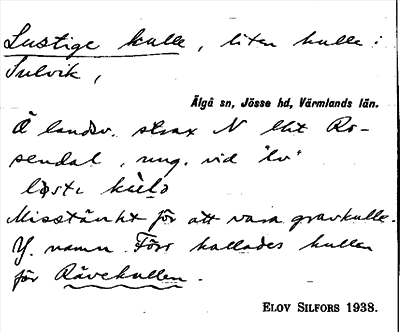 Lustige kulle, liten kulle i
Sulvik,
Älgå sn, Jösse hd, Värmlands län.
Å landsv. strax N litt Ro-
sendal, ung. vid "lv"
Misstänkt för att vara gravkulle.
Y. namn. Förr kallades kullen
för Rävekullen.
ELOV SILFORS 1938.